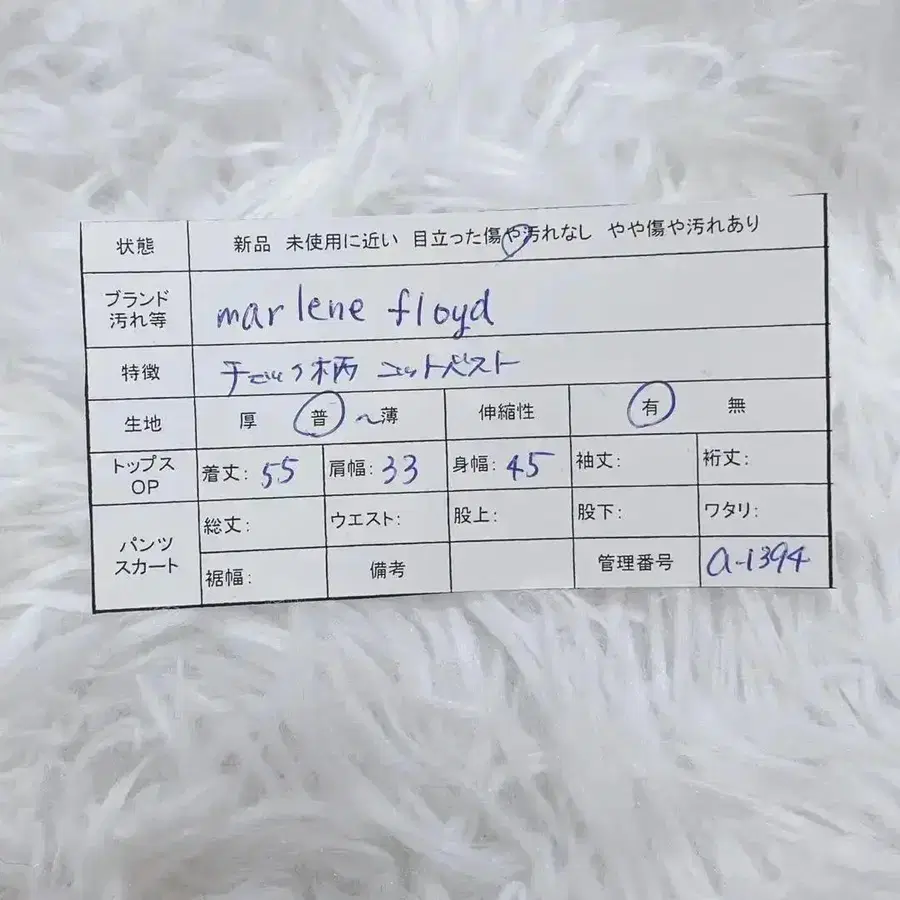 状態 新品 未使用に近い 目立った傷や汚れなし やや傷や汚れあり
ブランド
汚れ等 marlene floyd
特徴 チェック柄 ニットベスト
生地 厚 普 〜薄 伸縮性 有 無
トップス
OP 着丈: 55 肩幅: 33 身幅: 45 袖丈: 裄丈:
パンツ
スカート 総丈: ウエスト: 股上: 股下: ワタリ:
裾幅: 備考 管理番号 a-1394